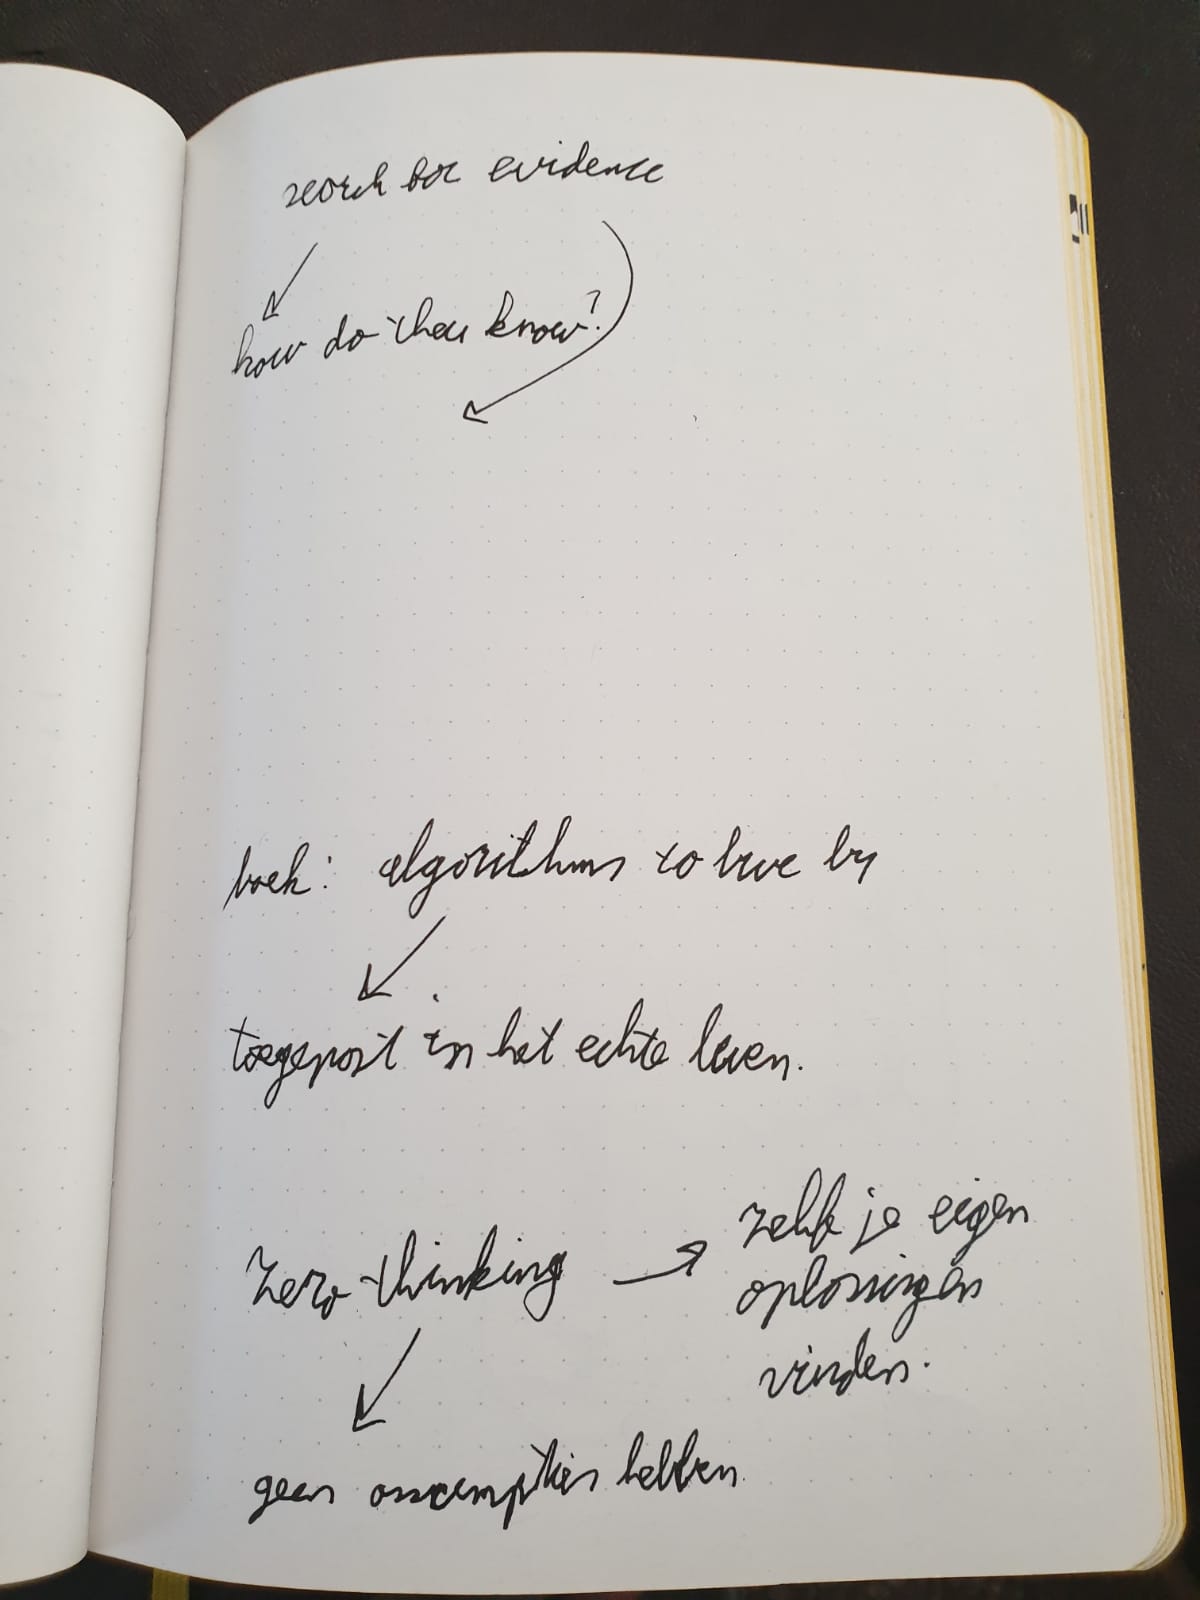 search for evidence
how do they know?
boek: algorithms to live by
toegepast in het echte leven.
zero-thinking
zelf je eigen
oplossingen
vinden.
geen assumpties hebben